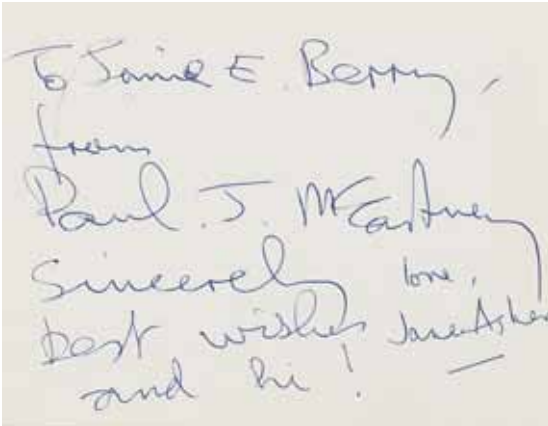 To Jamie E. Berry,
from
Paul. J. McCartney
Sincerely
love,
best wishes
Jane Asher
and hi!